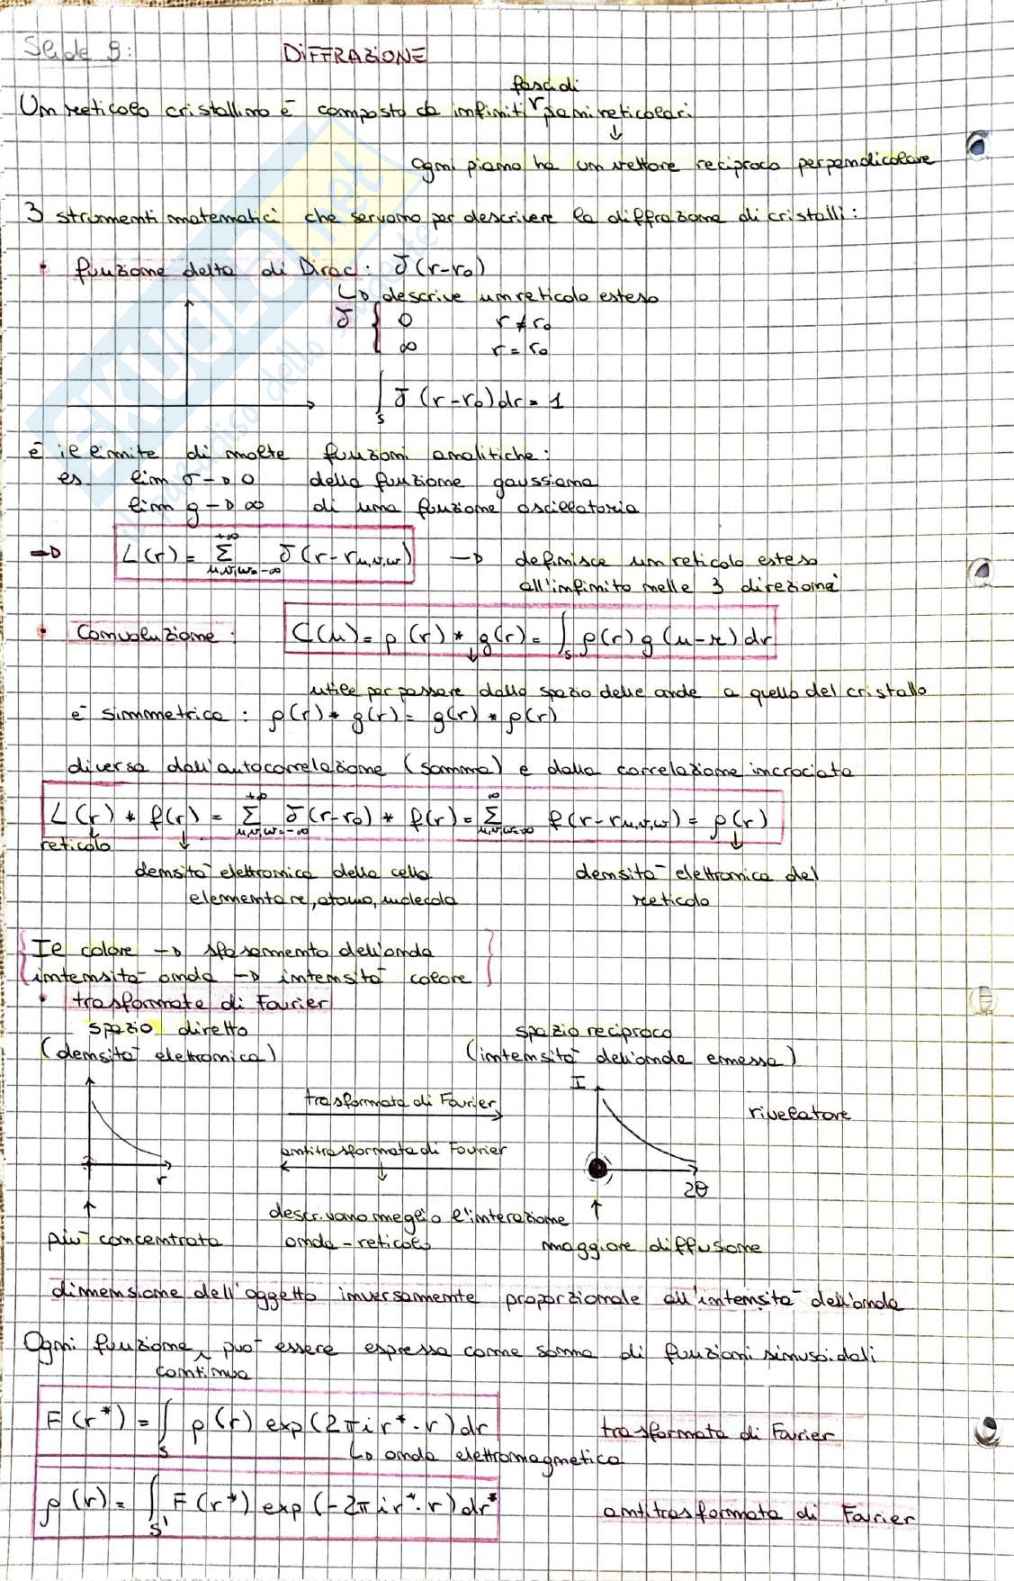 Slide 9:
DIFFRAZIONE
fasci di
Un reticolo cristallino è composto da infiniti piani reticolari
↓
ogni piano ha un vettore reciproco perpendicolare
3 strumenti matematici che servono per descrivere la diffrazione di cristalli:
• funzione delta di Dirac: δ(r-r₀)
↳ descrive un reticolo esteso
δ { 0 r ≠ r₀
∞ r = r₀
∫s δ(r-r₀)dr = 1
è il limite di molte funzioni analitiche:
es. lim σ→0 della funzione gaussiana
lim g→∞ di una funzione oscillatoria
→ L(r) = Σ u,v,w=-∞ +∞ δ(r-r u,v,w) → definisce un reticolo esteso
all'infinito nelle 3 direzioni
• Convoluzione: C(u) = ρ(r) * g(r) = ∫s ρ(r) g(u-r) dr
↓
utile per passare dallo spazio delle onde a quello del cristallo
è simmetrica: ρ(r) * g(r) = g(r) * ρ(r)
diversa dall'autocorrelazione (somma) e dalla correlazione incrociata
L(r) * f(r) = Σ u,v,w=-∞ +∞ δ(r-r₀) * f(r) = Σ u,v,w=∞ ∞ f(r-r u,v,w) = ρ(r)
reticolo
densità elettronica della cella densità elettronica del
elementare, atomo, molecola reticolo
{ Il colore → sfasamento dell'onda }
{ intensità onda → intensità colore }
• trasformate di Fourier
spazio diretto spazio reciproco
(densità elettronica) (intensità dell'onda emessa)
I
trasformata di Fourier rivelatore
antitrasformata di Fourier
r 2θ
descrivono meglio l'interazione
più concentrata onda-reticolo maggiore diffusione
dimensione dell'oggetto inversamente proporzionale all'intensità dell'onda
Ogni funzione può essere espressa come somma di funzioni sinusoidali
continua
F(r*) = ∫s ρ(r) exp(2πir*·r)dr trasformata di Fourier
↳ onda elettromagnetica
ρ(r) = ∫s' F(r*) exp(-2πir*·r)dr* antitrasformata di Fourier